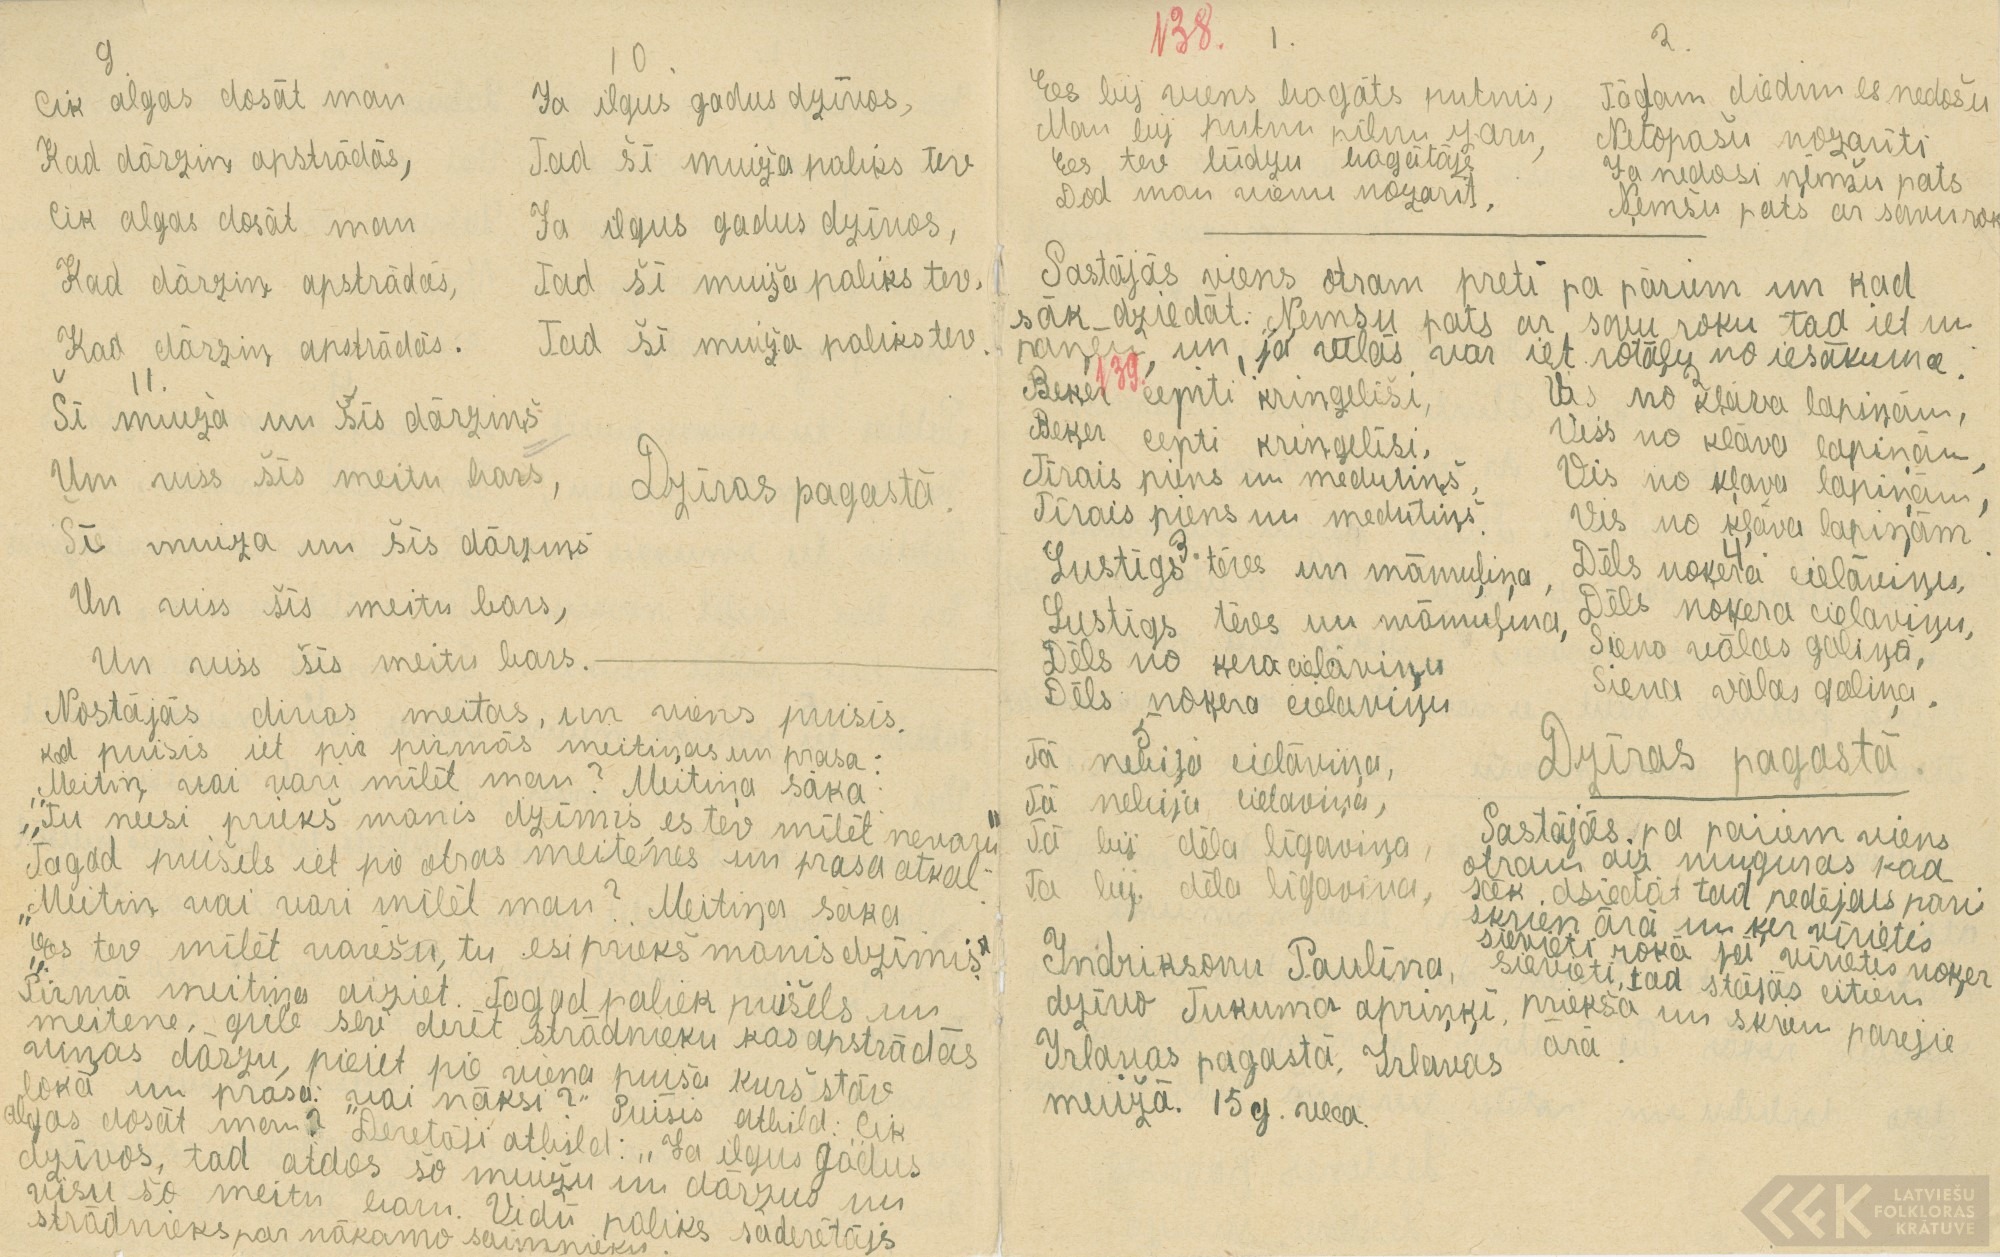 9.
Cik algas dosāt man
Kad dārziņ apstrādās,
Cik algas dosāt man
Kad dārziņ apstrādās,
Kad dārziņ apstrādās.
10.
Ja ilgus gadus dzīvos,
Tad šī muiža paliks tev
Ja ilgus gadus dzīvos,
Tad šī muiža paliks tev.
Tad šī muiža paliks tev.
11.
Šī muiža un šīs dārziņš
Un viss šīs meitu bars,
Šī muiža un šīs dārziņš
Un viss šīs meitu bars,
Un viss šīs meitu bars.
Dzīras pagastā.
Nostājās divas meitas, un viens puisis.
kad puisis iet pie pirmās meitiņas un prasa:
„Meitiņ vai vari mīlēt man? Meitiņa sāka:
„Tu neesi priekš manis dzimis, es tev mīlēt nevaru"
Tagad puišels iet pie otras meitenes un prasa atkal
„Meitiņ vai vari mīlēt man? Meitiņa sāka
„Es tev mīlēt varēšu, tu esi priekš manis dzimis"
Pirmā meitiņa aiziet. Tagad paliek puišels un
meitene, grib sev derēt strādnieku kas apstrādās
viņas dārzu, pieiet pie viena puiša kurš stāv
lokā un prasa: vai nāksi?" Puisis atbild: Cik
algas dosāt man? "Deretāji atbild: „Ja ilgus gadus
dzīvos, tad atdos šo muižu un dārzus un
visu šo meitu baru. Vidū paliks saderētājs
strādnieks par nākamo saimnieku.
138.
1.
Ees bij viens bagāts putnis,
Man bij putnu pilnu zaru,
Ees tev lūdzu bagātājs
Dod man vienu nozarīt.
2.
Tādam diedim es nedošu
Netopašu nozarīti
Ja nedosi ņemšu pats
Ņemšu pats ar savu rok
Sastājās viens otram preti pa pāriem un kad
sāk dziedāt: Ņemšu pats ar savu roku tad iet un
un, ja vēlās var iet rotaļu no iesākuma.
139.
Beķer cepiti kringelīši,
Beķer cepti kringelīši,
Tīrais piens un medutiņš,
Tīrais piens un medutiņš.
2
Vis no kļava lapiņām,
Viss no kļāva lapiņām,
Vis no kļava lapiņām,
Vis no kļāva lapiņām
3.
Lustīgs tēvs un māmuļiņa,
Lustīgs tēvs un māmuļiņa,
Dēls no ķera cielāviņu
Dēls noķera cielaviņu
4.
Dēls noķera cielāviņu,
Dēls noķera cielaviņu,
Siena vālas galiņā,
Siena vālas galiņa.
5
Tā nebija cielāviņa,
Tā nebija cielaviņa,
Tā bij dēla līgaviņa,
Ta bij dēla līgaviņa,
Dzīras pagastā.
Sastājās pa pāriem viens
otram aiz muguras kad
sāk dziedāt tad pedējais pāris
skrien ārā un ķer vīrietis
sievieti rokā ja vīrietis noķer
sievieti, tad stājās citiem
priekšā un skrien parejie
ārā.
Indriksonu Paulīna,
dzīvo Tukuma apriņķī,
Irlavas pagastā, Irlavas
muižā. 15 g. veca.
LATVIEŠU
FOLKLORAS
KRĀTUVE